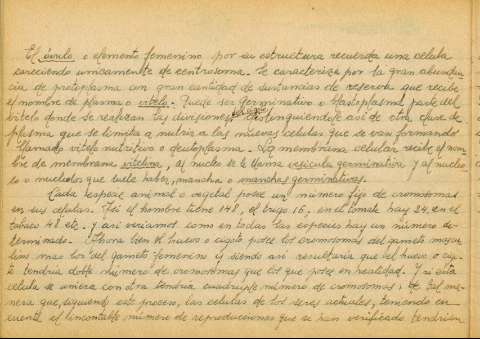 El óvulo o elemento femenino por su estructura recuerda una celula
careciendo unicamente de centrosoma. Se caracteriza por la gran abundan-
cia de protoplasma con gran cantidad de sustancias de reserva que recibe
el nombre de plasma o vitelo. Puede ser germinativo o blastoplasma parte del
vitelo donde se realizan las divisiones distinguiendose asi de otra clase de
plasma que se limita a nutrir a las nuevas celulas que se van formando
llamado vitelo nutritivo o deutoplasma. La membrana celular recibe el nom-
bre de membrana vitelina, al nucleo se le llama vesicula germinativa y al nucleo-
lo o nucleolos que suele haber, mancha o manchas germinativas.
Cada especie animal o vegetal posee un número fijo de cromosomas
en sus celulas. Asi el hombre tiene 48, el trigo 16, en el tomate hay 24, en el
tabaco 48 etc. Y asi veriamos como en todas las especies hay un número de-
terminado. Ahora bien el huevo o cigoto posee los cromosomas del gameto mascu-
lino mas los del gameto femenino y siendo asi resultaria que el huevo o cigo-
to tendria doble número de cromosomas que los que posee en realidad. Y si esta
celula se uniera con otra tendria cuadruple número de cromosomas; de tal ma-
nera que siguiendo este proceso, las celulas de los seres actuales, teniendo en
cuenta el incontable número de reproducciones que se han verificado tendrian